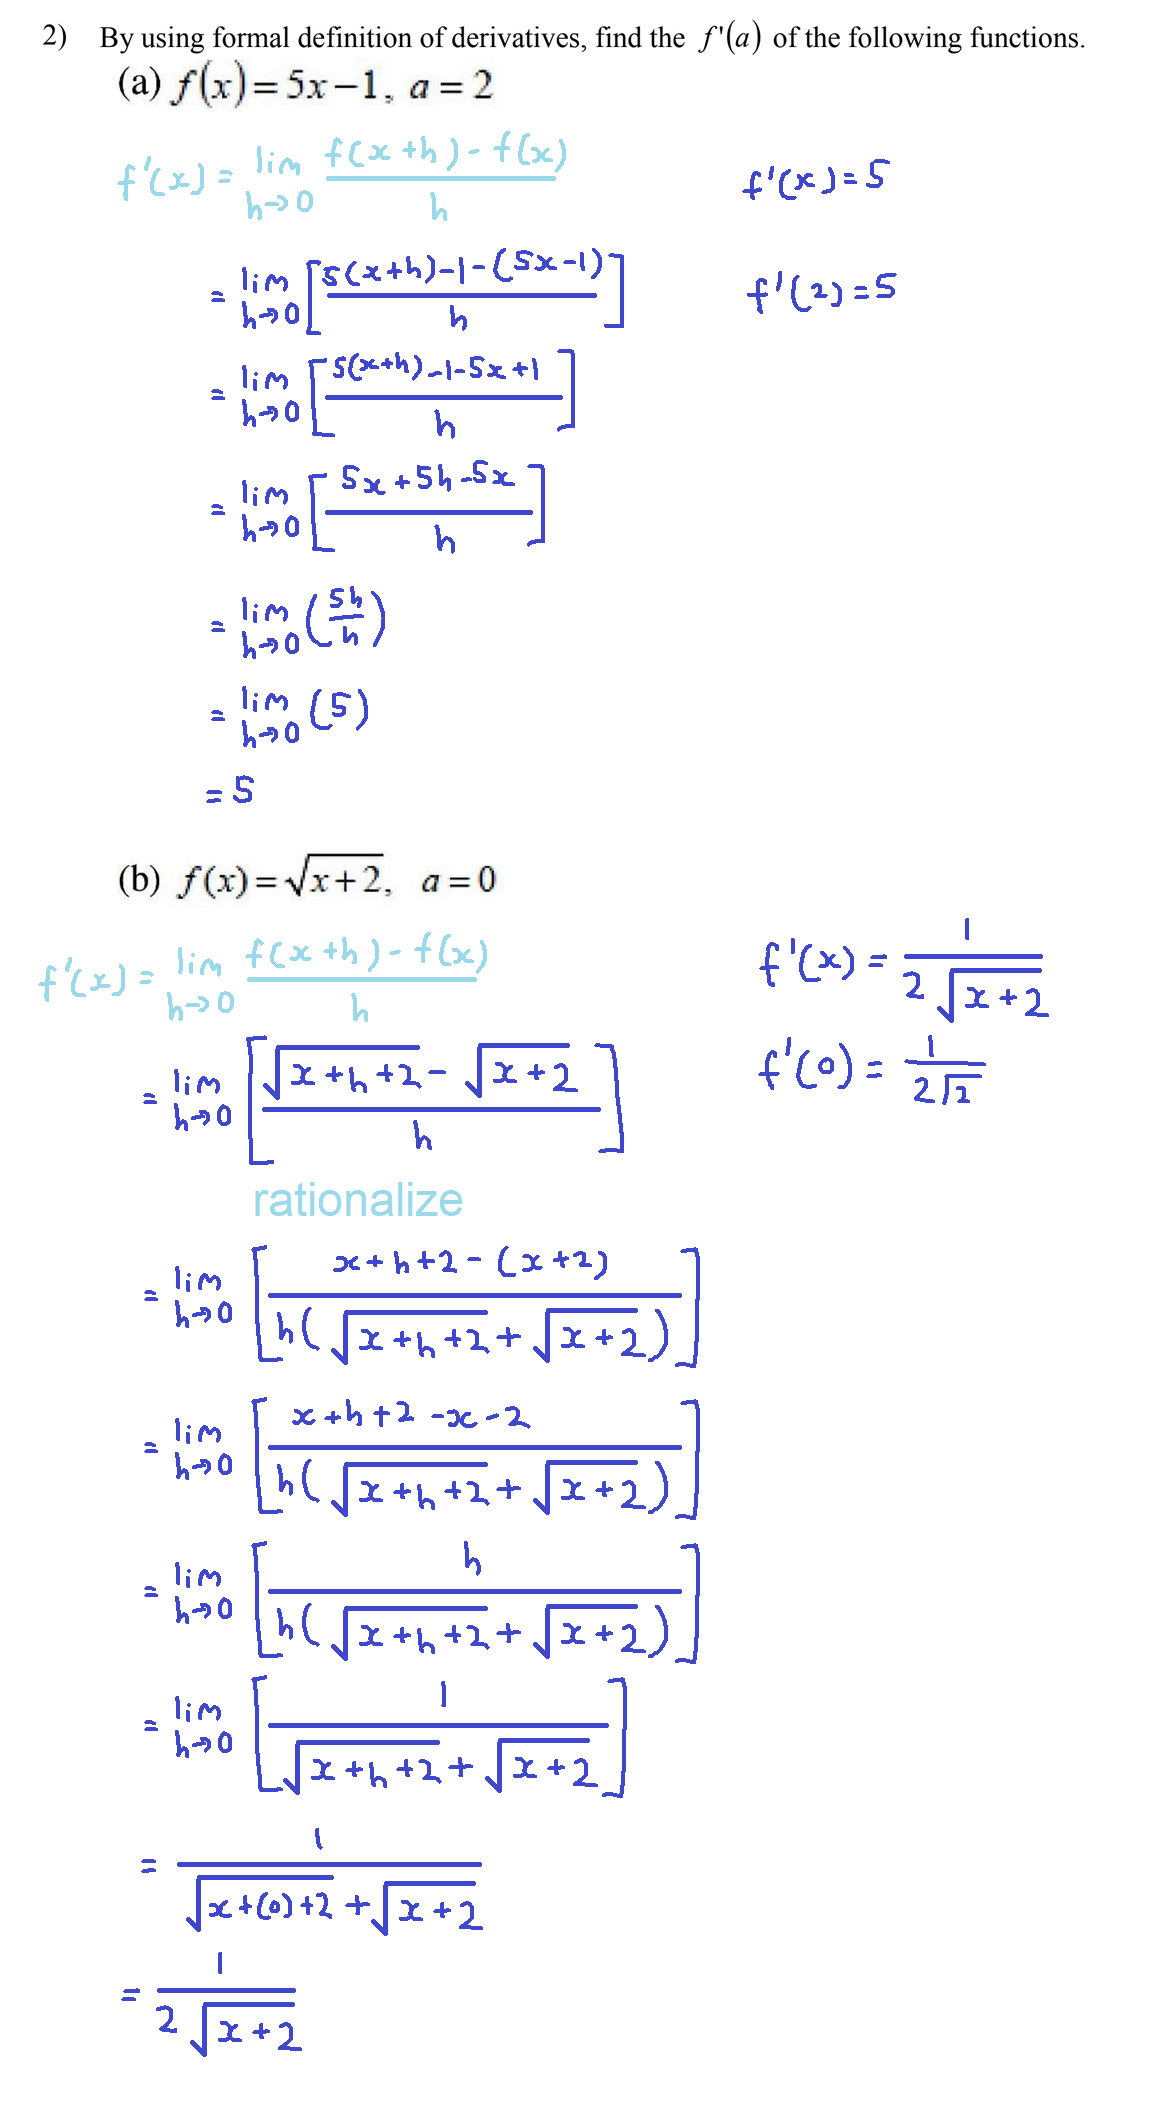 2) By using formal definition of derivatives, find the f'(a) of the following functions.
(a) f(x) = 5x − 1, a = 2
f'(x) = lim h→0 (f(x+h) - f(x))/h
f'(x) = 5
= lim h→0 [(5(x+h)-1-(5x-1))/h]
f'(2) = 5
= lim h→0 [(5(x+h)-1-5x+1)/h]
= lim h→0 [(5x+5h-5x)/h]
= lim h→0 (5h/h)
= lim h→0 (5)
= 5
(b) f(x) = √(x+2), a = 0
f'(x) = lim h→0 (f(x+h) - f(x))/h
f'(x) = 1/(2√(x+2))
= lim h→0 [(√(x+h+2) - √(x+2))/h]
f'(0) = 1/(2√2)
rationalize
= lim h→0 [(x+h+2-(x+2))/(h(√(x+h+2) + √(x+2)))]
= lim h→0 [(x+h+2-x-2)/(h(√(x+h+2) + √(x+2)))]
= lim h→0 [h/(h(√(x+h+2) + √(x+2)))]
= lim h→0 [1/(√(x+h+2) + √(x+2))]
= 1/(√(x+(0)+2) + √(x+2))
= 1/(2√(x+2))